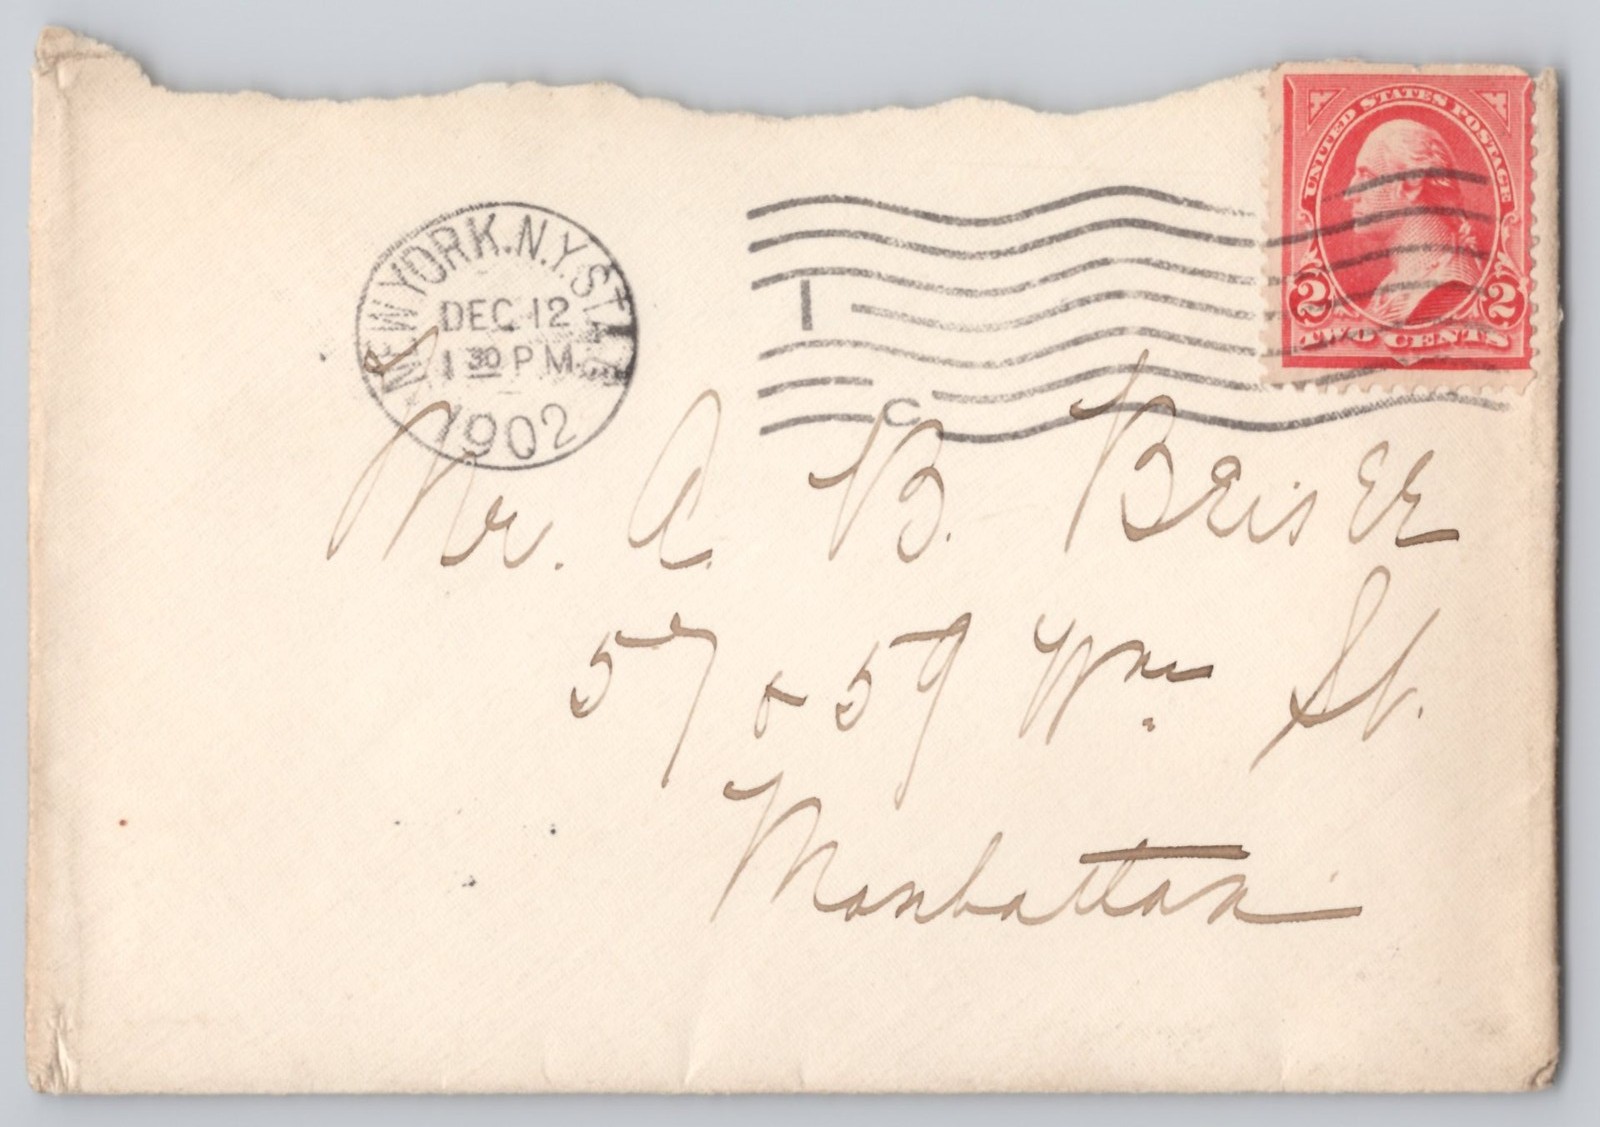 UNITED STATES POSTAGE
2 2
TWO CENTS
NEW YORK, N.Y.
DEC 12
1 30 PM
1902
1
C
Mr. A. B. Beisee
57 + 59 Wm. St.
Manhattan